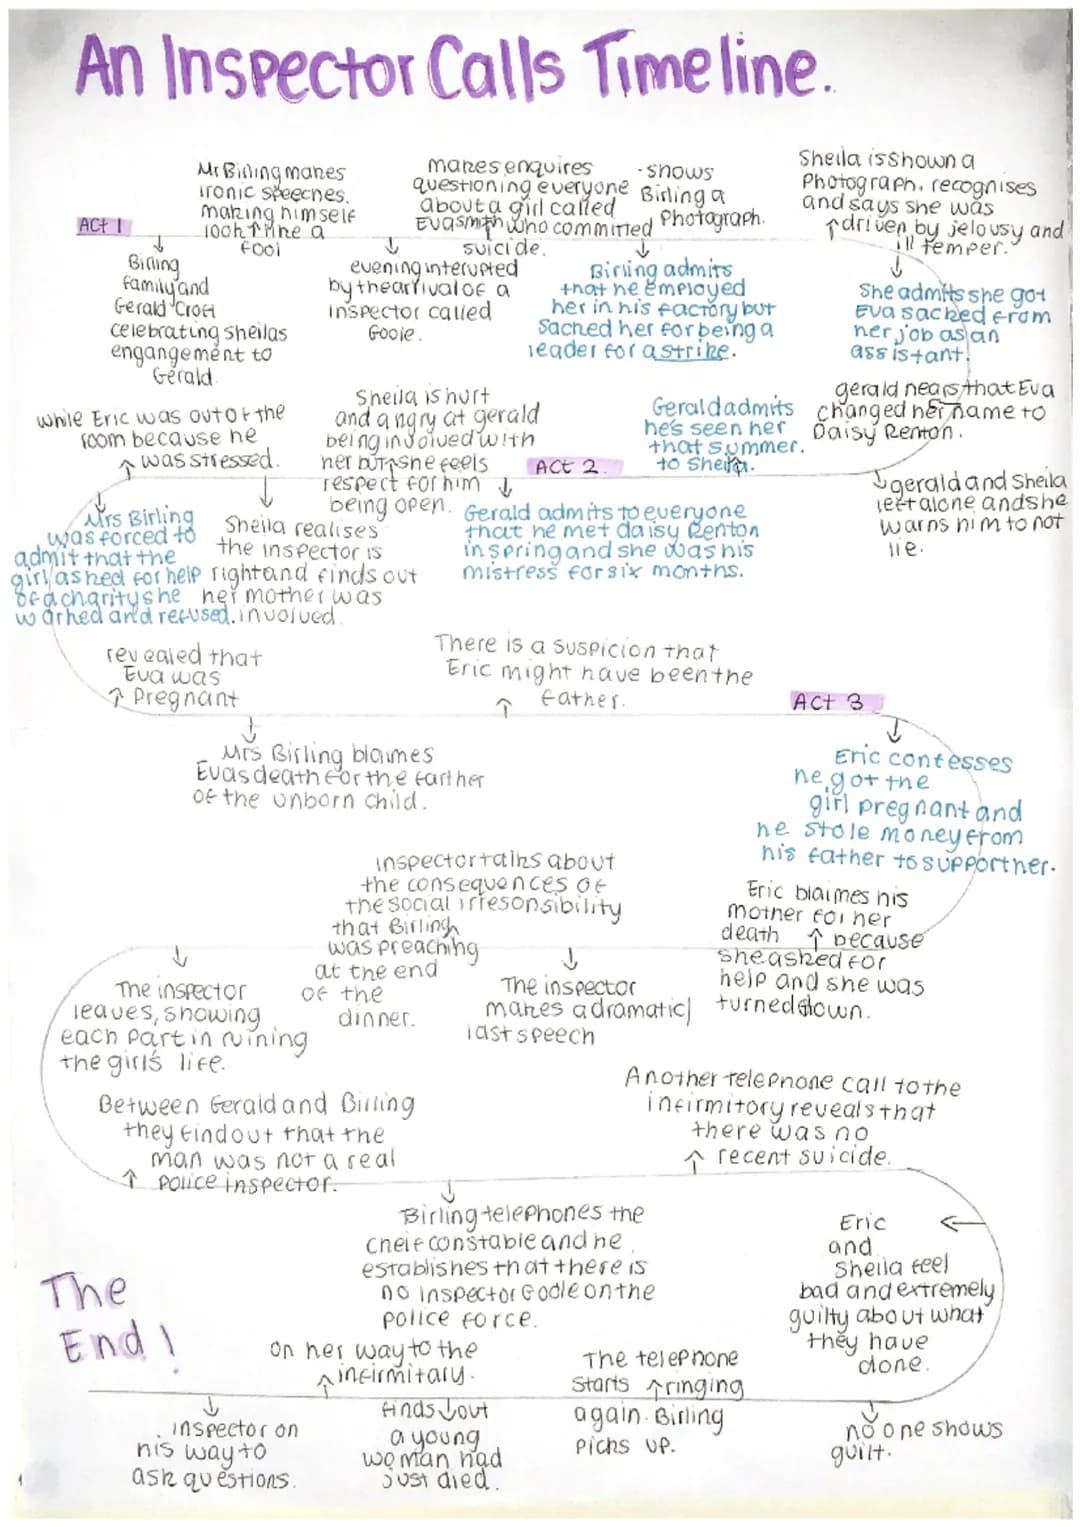 An Inspector Calls Timeline.
ACT 1
Birling
family and
Gerald Croft
celebrating sheilas
engangement to
Gerald.
Mr Birling makes
ironic speeches.
making himself
look like a
fool
evening interupted
by the arrival of a
inspector called
Goole.
makes enquires
questioning everyone
about a girl called
Eva smith who committed
suicide.
- shows
Birling a
Photograph.
Birling admits
that he employed
her in his factory but
Sacked her for being a
leader for a strike.
Sheila is shown a
Photograph. recognises
and says she was
driven by jelousy and
ill temper.
She admits she got
Eva sacked from
her job as an
assistant.
gerald hears that Eva
changed her name to
Daisy Renton.
gerald and Sheila
left alone and she
warns him to not
lie.
Gerald admits
he's seen her
that summer.
to Sheila.
ACT 2
Gerald admits to everyone
that he met daisy Renton
in spring and she was his
mistress for six months.
Sheila is hurt
and angry at gerald
being involved with
her but she feels
respect for him
being open.
Sheila realises
the inspector is
right and finds out
her mother was
involved.
while Eric was out of the
room because he
was stressed.
Mrs Birling
was forced to
admit that the
girl asked for help
of a charity she
worked and refused.
revealed that
Eva was
Pregnant
Mrs Birling blaimes
Evas death for the farther
of the unborn child.
There is a suspicion that
Eric might have been the
father.
ACT 3
Eric confesses
he got the
girl pregnant and
he stole money from
his father to support her.
Eric blaimes his
mother for her
death because
she asked for
help and she was
turned down.
The inspector
makes a dramatic
last speech
inspector talks about
the consequences of
the social irresonsibility
that Birling
was preaching
at the end
of the
dinner.
The inspector
leaves, showing
each part in ruining
the girl's life.
Between Gerald and Birling
they find out that the
man was not a real
police inspector.
Birling telephones the
cheif constable and he
establishes that there is
no inspector Goole on the
police force.
Another telephone call to the
infirmitory reveals that
there was no
recent suicide.
Eric
and
Sheila feel
bad and extremely
guilty about what
they have
done.
no one shows
guilt.
The telephone
starts ringing
again. Birling
picks up.
finds out
a young
woman had
just died.
on her way to the
infirmitary.
inspector on
his way to
ask questions.
The
End!